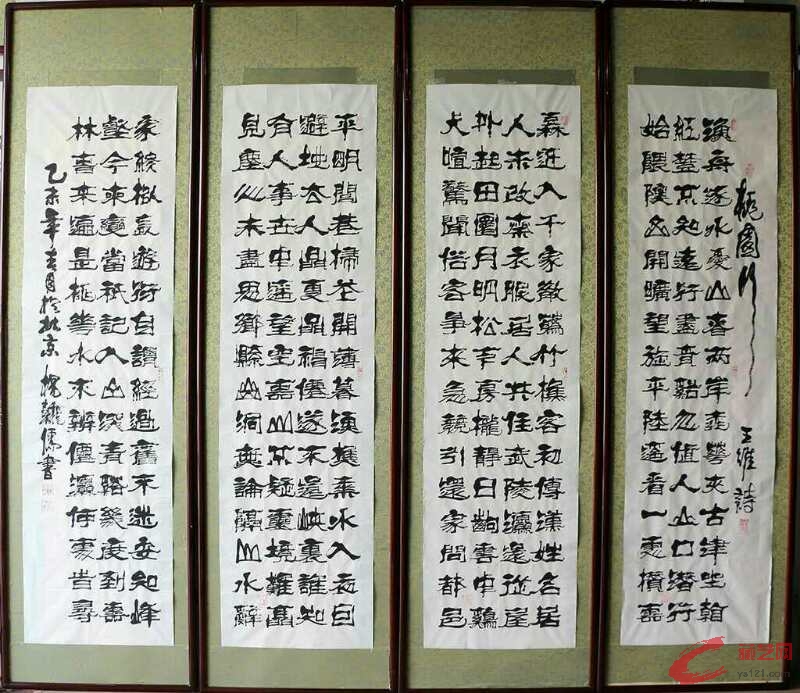 桃園行
王維詩
漁舟逐水愛山春兩岸桃華夾古津坐看
紅樹不知遠行盡青谿忽值人山口潛行
始隈隩山開曠望旋平陸遙看一處攢雲
樹近入千家散花竹樵客初傳漢姓名居
人未改秦衣服居人共住武陵源還從物
外起田園月明松下房櫳靜日出雲中雞
犬喧驚聞俗客爭來集競引還家問都邑
平明閭巷掃花開薄暮漁樵乘水入初因
避地去人間更問神僊遂不還峽裏誰知
有人事世中遙望空雲山不疑靈境難聞
見塵心未盡思鄉縣出洞無論隔山水辭
家終擬長遊衍自謂經過舊不迷安知峰
壑今來變當時只記入山深青谿幾度到雲
林春來遍是桃華水不辨僊源何處尋
乙未年吉月於北京
ya121.com